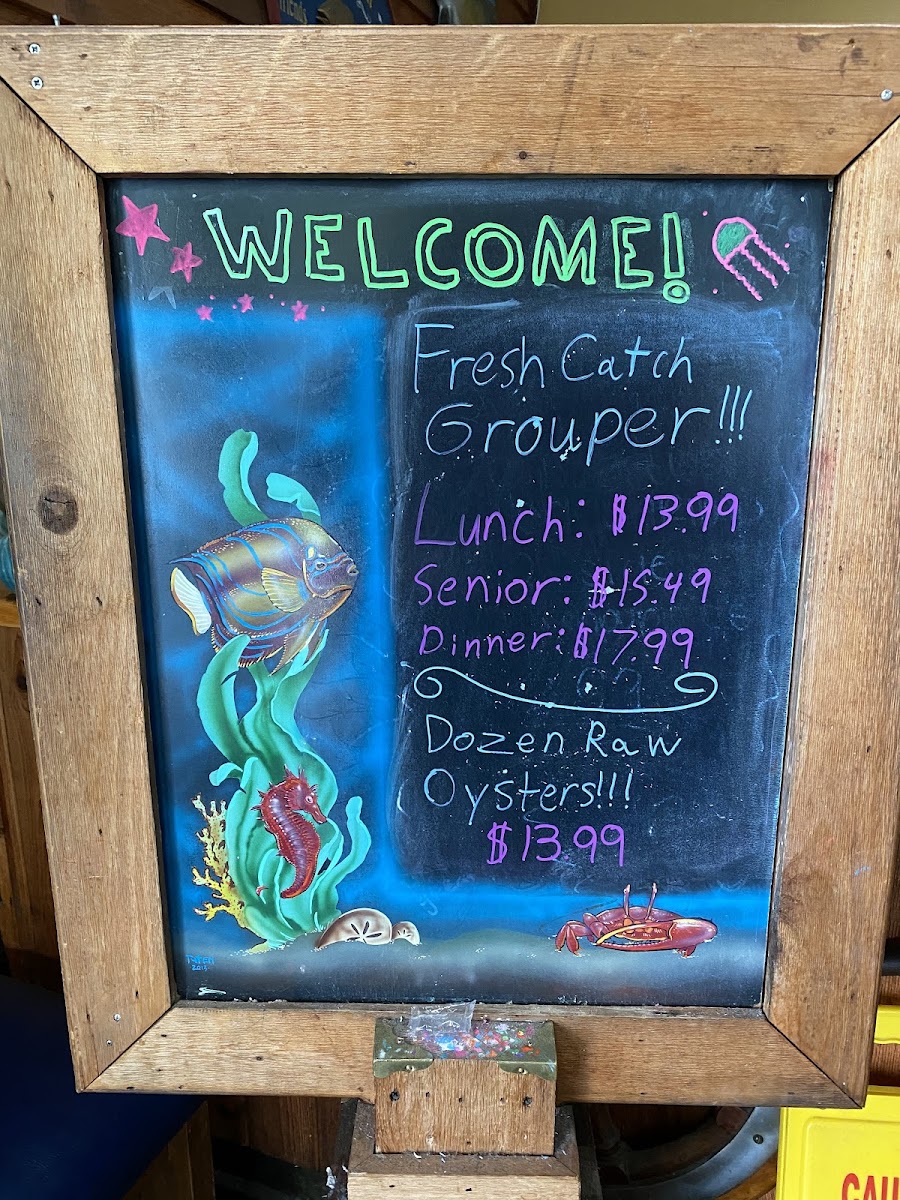 WELCOME!
Fresh Catch
Grouper!!!
Lunch: $13.99
Senior: $15.49
Dinner: $17.99
Dozen Raw
Oysters!!!
$13.99
CAU